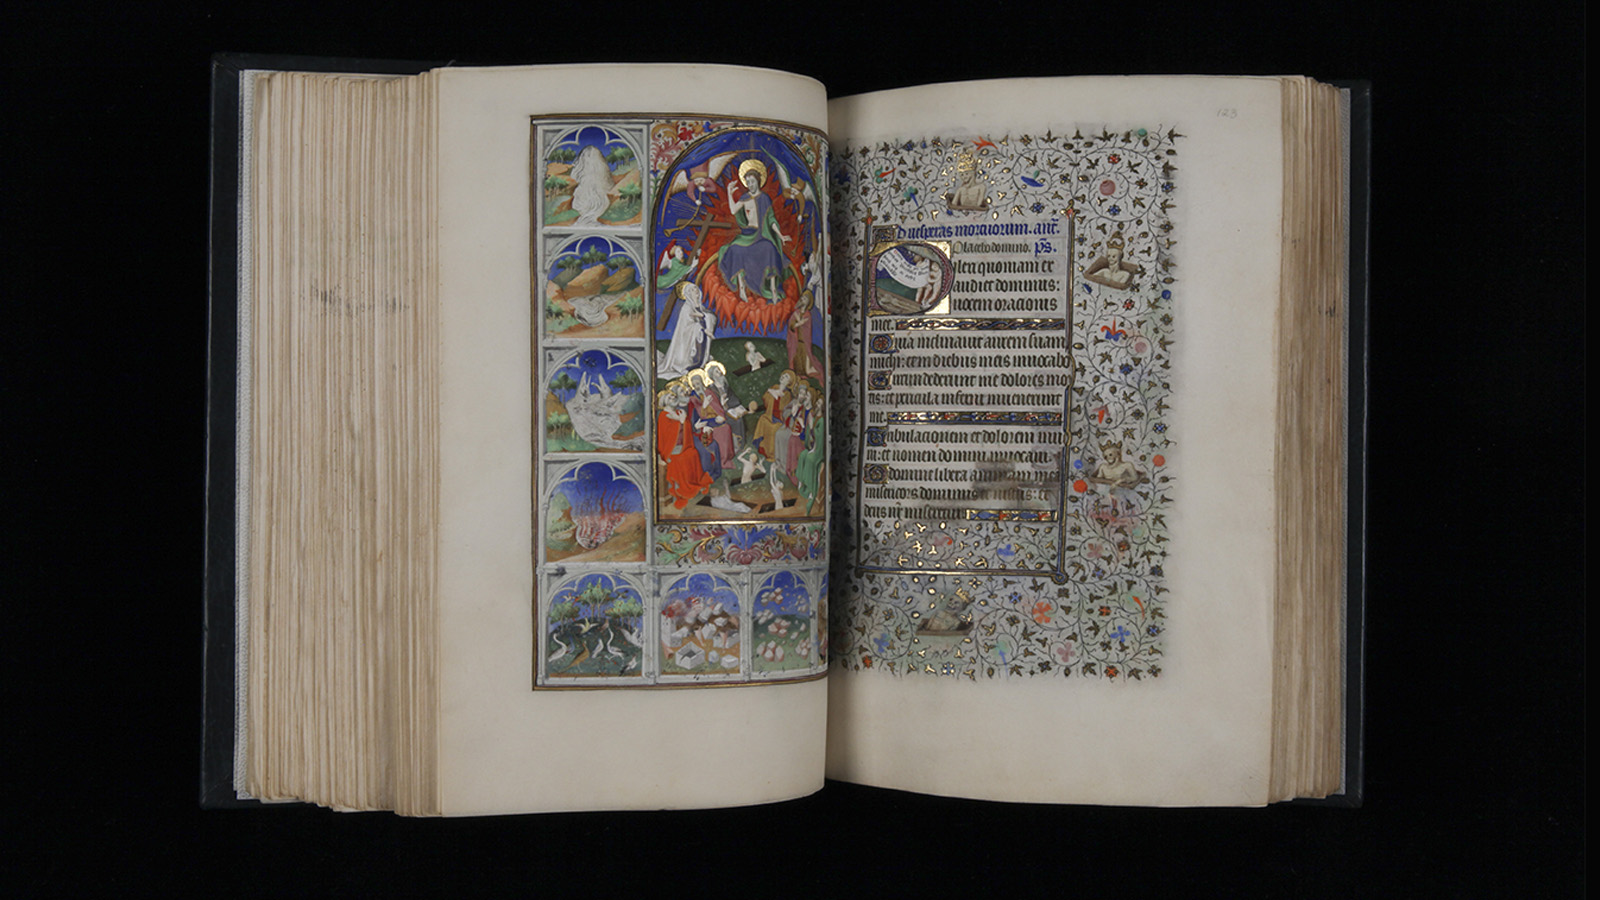 123
Ad vesperas mortuorum. ant.
Placebo domino. ps.
Dilexi quoniam ex
audiet dominus:
vocem oracionis
mee.
Quia inclinavit aurem suam
michi: et in diebus meis invocabo
Circumdederunt me dolores mor
tis: et pericula inferni invenerunt
me.
Tribulacionem et dolorem inve
ni: et nomen domini invocavi.
O domine libera animam mea
misericors dominus et iustus: et
deus nr miseretur